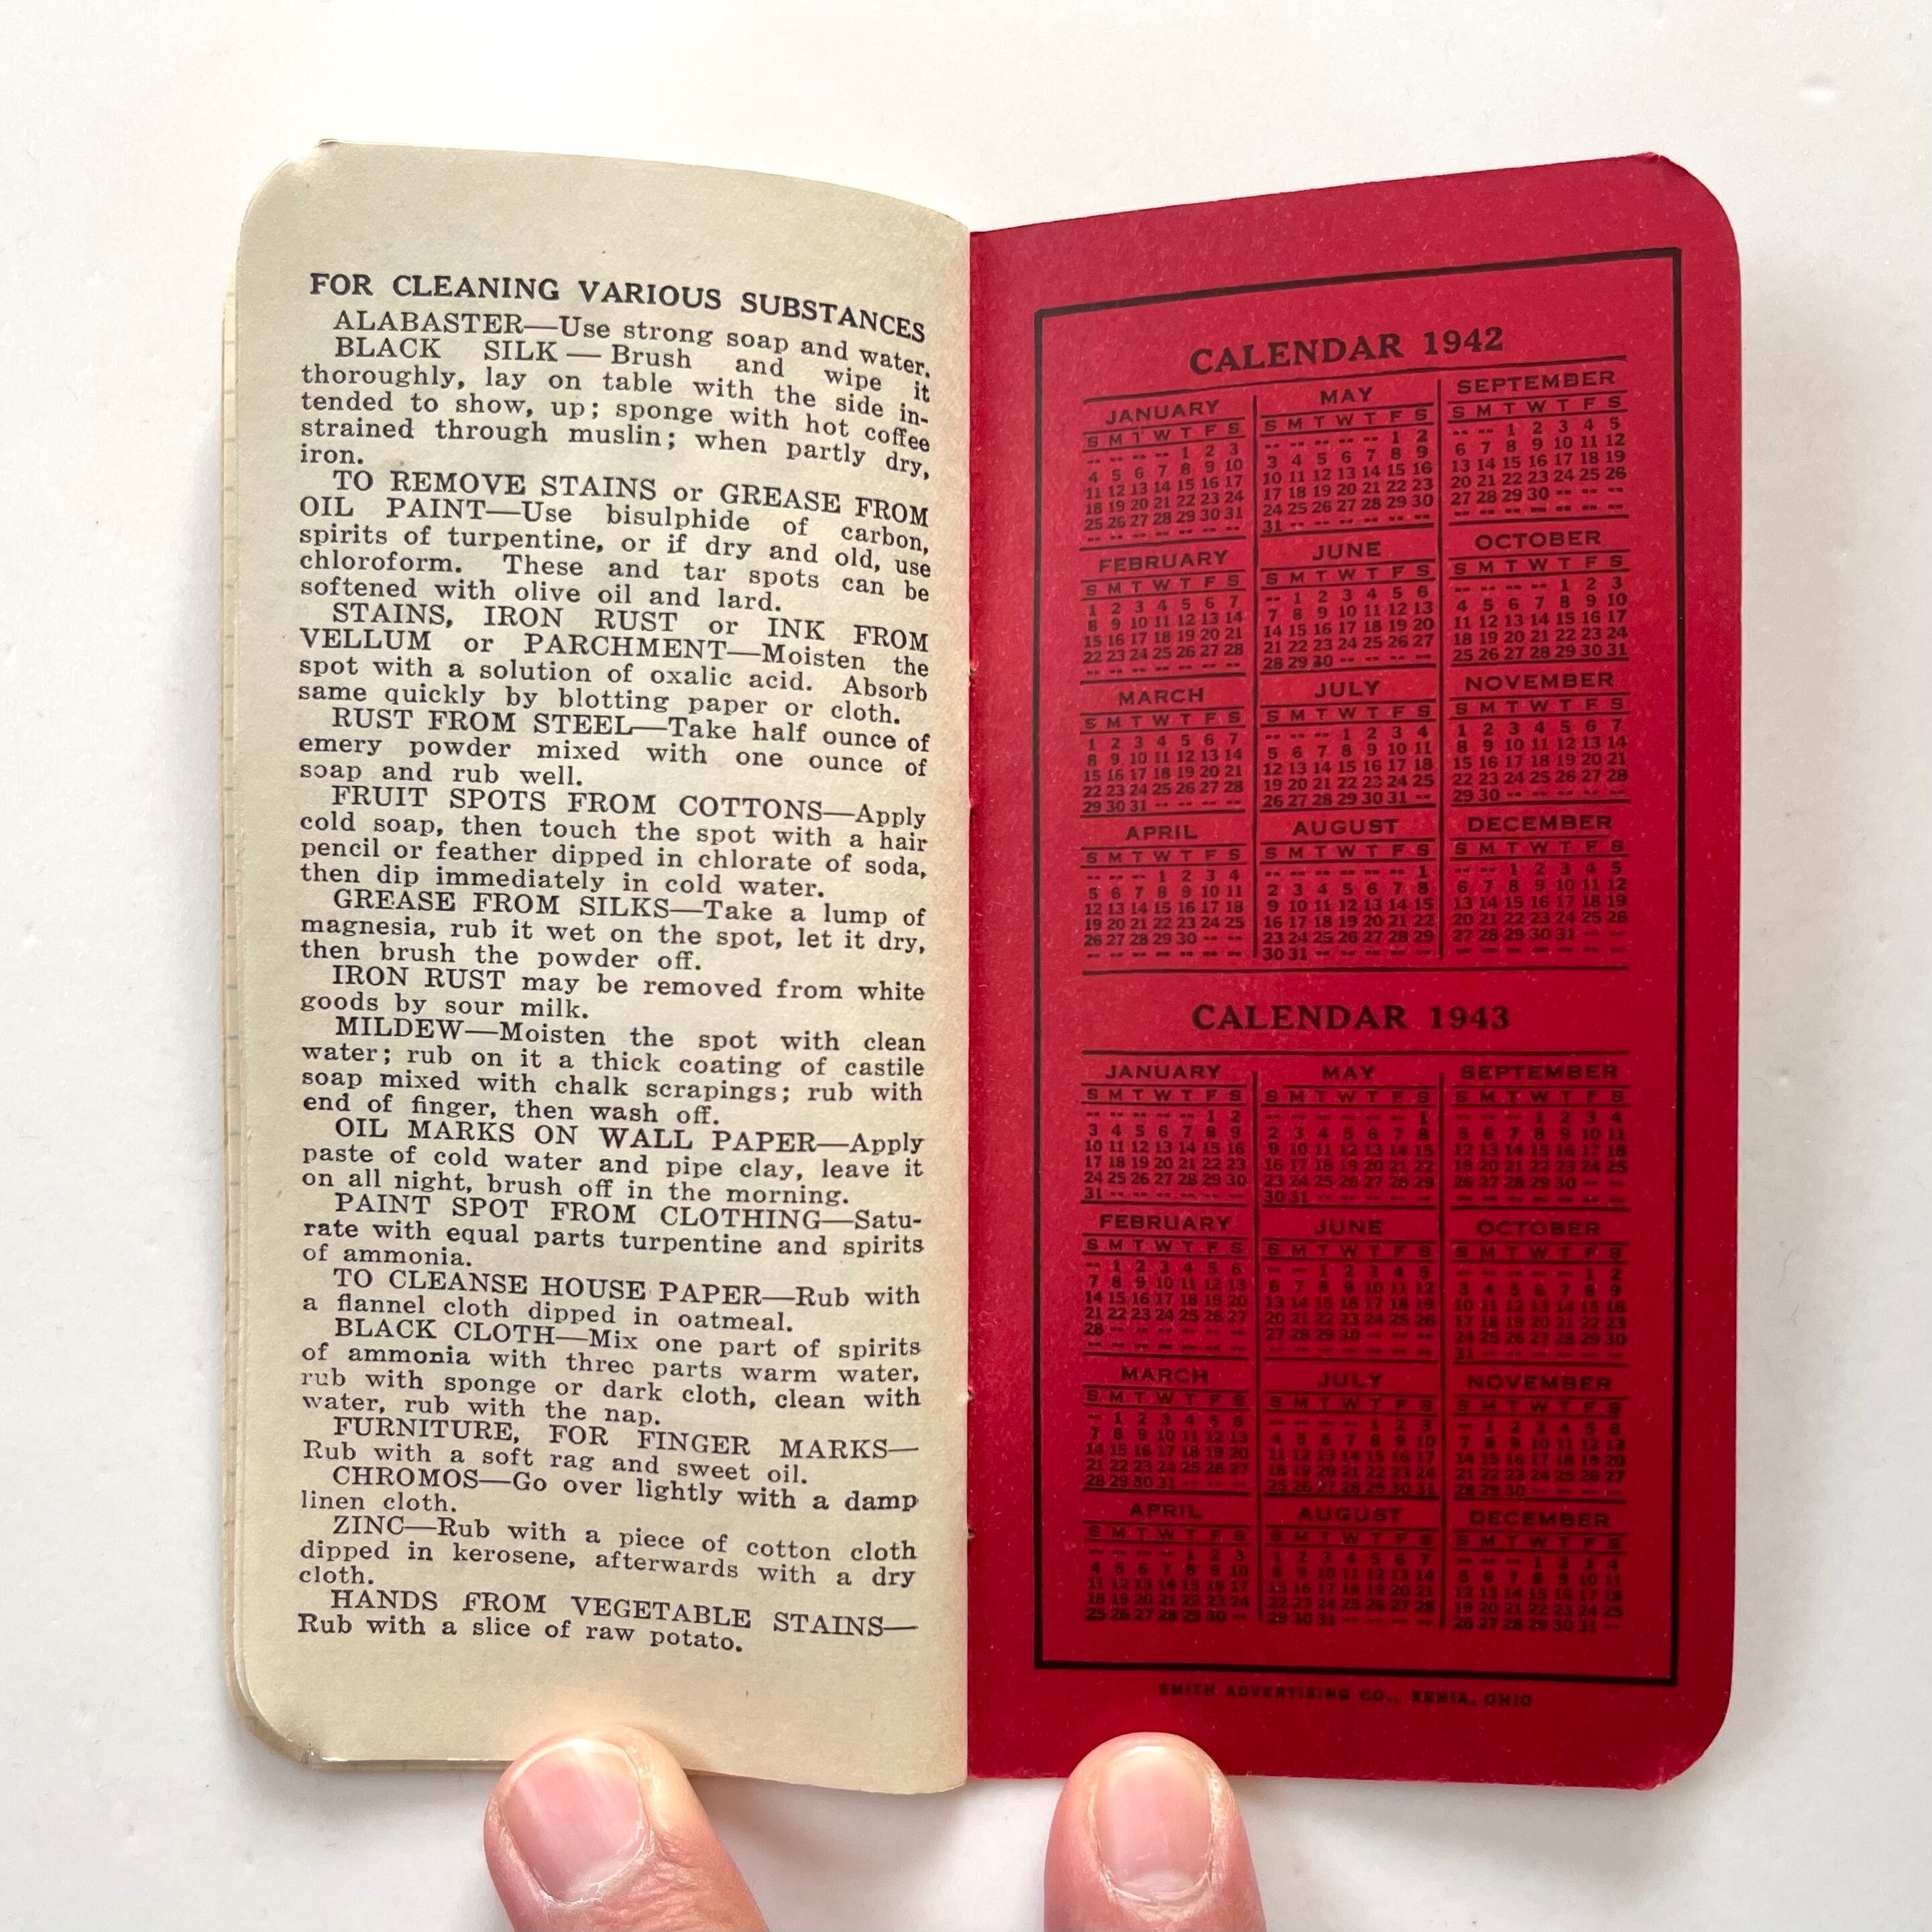 FOR CLEANING VARIOUS SUBSTANCES
ALABASTER—Use strong soap and water.
BLACK SILK — Brush and wipe it
thoroughly, lay on table with the side in-
tended to show, up; sponge with hot coffee
strained through muslin; when partly dry,
iron.
TO REMOVE STAINS or GREASE FROM
OIL PAINT—Use bisulphide of carbon,
spirits of turpentine, or if dry and old, use
chloroform. These and tar spots can be
softened with olive oil and lard.
STAINS, IRON RUST or INK FROM
VELLUM or PARCHMENT—Moisten the
spot with a solution of oxalic acid. Absorb
same quickly by blotting paper or cloth.
RUST FROM STEEL—Take half ounce of
emery powder mixed with one ounce of
soap and rub well.
FRUIT SPOTS FROM COTTONS—Apply
cold soap, then touch the spot with a hair
pencil or feather dipped in chlorate of soda,
then dip immediately in cold water.
GREASE FROM SILKS—Take a lump of
magnesia, rub it wet on the spot, let it dry,
then brush the powder off.
IRON RUST may be removed from white
goods by sour milk.
MILDEW—Moisten the spot with clean
water; rub on it a thick coating of castile
soap mixed with chalk scrapings; rub with
end of finger, then wash off.
OIL MARKS ON WALL PAPER—Apply
paste of cold water and pipe clay, leave it
on all night, brush off in the morning.
PAINT SPOT FROM CLOTHING—Satu-
rate with equal parts turpentine and spirits
of ammonia.
TO CLEANSE HOUSE PAPER—Rub with
a flannel cloth dipped in oatmeal.
BLACK CLOTH—Mix one part of spirits
of ammonia with three parts warm water,
rub with sponge or dark cloth, clean with
water, rub with the nap.
FURNITURE, FOR FINGER MARKS—
Rub with a soft rag and sweet oil.
CHROMOS—Go over lightly with a damp
linen cloth.
ZINC—Rub with a piece of cotton cloth
dipped in kerosene, afterwards with a dry
cloth.
HANDS FROM VEGETABLE STAINS—
Rub with a slice of raw potato.
CALENDAR 1942
JANUARY
S M T W T F S
-- -- -- -- 1 2 3
4 5 6 7 8 9 10
11 12 13 14 15 16 17
18 19 20 21 22 23 24
25 26 27 28 29 30 31
FEBRUARY
S M T W T F S
1 2 3 4 5 6 7
8 9 10 11 12 13 14
15 16 17 18 19 20 21
22 23 24 25 26 27 28
MARCH
S M T W T F S
1 2 3 4 5 6 7
8 9 10 11 12 13 14
15 16 17 18 19 20 21
22 23 24 25 26 27 28
29 30 31 -- -- -- --
APRIL
S M T W T F S
-- -- -- 1 2 3 4
5 6 7 8 9 10 11
12 13 14 15 16 17 18
19 20 21 22 23 24 25
26 27 28 29 30 -- --
MAY
S M T W T F S
-- -- -- -- -- 1 2
3 4 5 6 7 8 9
10 11 12 13 14 15 16
17 18 19 20 21 22 23
24 25 26 27 28 29 30
31 -- -- -- -- -- --
JUNE
S M T W T F S
-- 1 2 3 4 5 6
7 8 9 10 11 12 13
14 15 16 17 18 19 20
21 22 23 24 25 26 27
28 29 30 -- -- -- --
JULY
S M T W T F S
-- -- -- 1 2 3 4
5 6 7 8 9 10 11
12 13 14 15 16 17 18
19 20 21 22 23 24 25
26 27 28 29 30 31 --
AUGUST
S M T W T F S
-- -- -- -- -- -- 1
2 3 4 5 6 7 8
9 10 11 12 13 14 15
16 17 18 19 20 21 22
23 24 25 26 27 28 29
30 31 -- -- -- -- --
SEPTEMBER
S M T W T F S
-- -- 1 2 3 4 5
6 7 8 9 10 11 12
13 14 15 16 17 18 19
20 21 22 23 24 25 26
27 28 29 30 -- -- --
OCTOBER
S M T W T F S
-- -- -- -- 1 2 3
4 5 6 7 8 9 10
11 12 13 14 15 16 17
18 19 20 21 22 23 24
25 26 27 28 29 30 31
NOVEMBER
S M T W T F S
1 2 3 4 5 6 7
8 9 10 11 12 13 14
15 16 17 18 19 20 21
22 23 24 25 26 27 28
29 30 -- -- -- -- --
DECEMBER
S M T W T F S
-- -- 1 2 3 4 5
6 7 8 9 10 11 12
13 14 15 16 17 18 19
20 21 22 23 24 25 26
27 28 29 30 31 -- --
CALENDAR 1943
JANUARY
S M T W T F S
-- -- -- -- -- 1 2
3 4 5 6 7 8 9
10 11 12 13 14 15 16
17 18 19 20 21 22 23
24 25 26 27 28 29 30
31 -- -- -- -- -- --
FEBRUARY
S M T W T F S
-- 1 2 3 4 5 6
7 8 9 10 11 12 13
14 15 16 17 18 19 20
21 22 23 24 25 26 27
28 -- -- -- -- -- --
MARCH
S M T W T F S
-- 1 2 3 4 5 6
7 8 9 10 11 12 13
14 15 16 17 18 19 20
21 22 23 24 25 26 27
28 29 30 31 -- -- --
APRIL
S M T W T F S
-- -- -- -- 1 2 3
4 5 6 7 8 9 10
11 12 13 14 15 16 17
18 19 20 21 22 23 24
25 26 27 28 29 30 --
MAY
S M T W T F S
-- -- -- -- -- -- 1
2 3 4 5 6 7 8
9 10 11 12 13 14 15
16 17 18 19 20 21 22
23 24 25 26 27 28 29
30 31 -- -- -- -- --
JUNE
S M T W T F S
-- -- 1 2 3 4 5
6 7 8 9 10 11 12
13 14 15 16 17 18 19
20 21 22 23 24 25 26
27 28 29 30 -- -- --
JULY
S M T W T F S
-- -- -- -- 1 2 3
4 5 6 7 8 9 10
11 12 13 14 15 16 17
18 19 20 21 22 23 24
25 26 27 28 29 30 31
AUGUST
S M T W T F S
1 2 3 4 5 6 7
8 9 10 11 12 13 14
15 16 17 18 19 20 21
22 23 24 25 26 27 28
29 30 31 -- -- -- --
SEPTEMBER
S M T W T F S
-- -- -- 1 2 3 4
5 6 7 8 9 10 11
12 13 14 15 16 17 18
19 20 21 22 23 24 25
26 27 28 29 30 -- --
OCTOBER
S M T W T F S
-- -- -- -- -- 1 2
3 4 5 6 7 8 9
10 11 12 13 14 15 16
17 18 19 20 21 22 23
24 25 26 27 28 29 30
31 -- -- -- -- -- --
NOVEMBER
S M T W T F S
-- 1 2 3 4 5 6
7 8 9 10 11 12 13
14 15 16 17 18 19 20
21 22 23 24 25 26 27
28 29 30 -- -- -- --
DECEMBER
S M T W T F S
-- -- -- 1 2 3 4
5 6 7 8 9 10 11
12 13 14 15 16 17 18
19 20 21 22 23 24 25
26 27 28 29 30 31 --
SMITH ADVERTISING CO., XENIA, OHIO